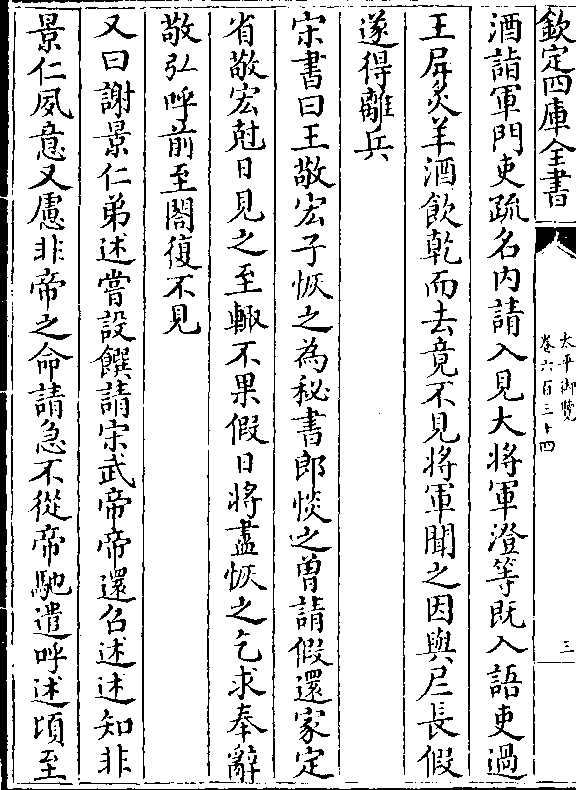 欽定四庫全書
太平御覽
卷六百三十四
三
酒詣軍門吏疏名内請入見大將軍澄等既入語吏過
王屏炙羊酒飲乾而去竟不見將軍聞之因與尼長假
遂得離兵
宋書曰王敬宏子恢之為秘書郎惔之曽請假還家定
省敬宏尅日見之至輙不果假日將盡恢之乞求奉辭
敬弘呼前至閤復不見
又曰謝景仁弟述嘗設饌請宋武帝帝還召述述知非
景仁夙意又慮非帝之命請急不從帝馳遣呼述頃至